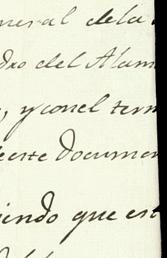 neral de la
dro del Alam
, y con el term
de este documen
iendo que est